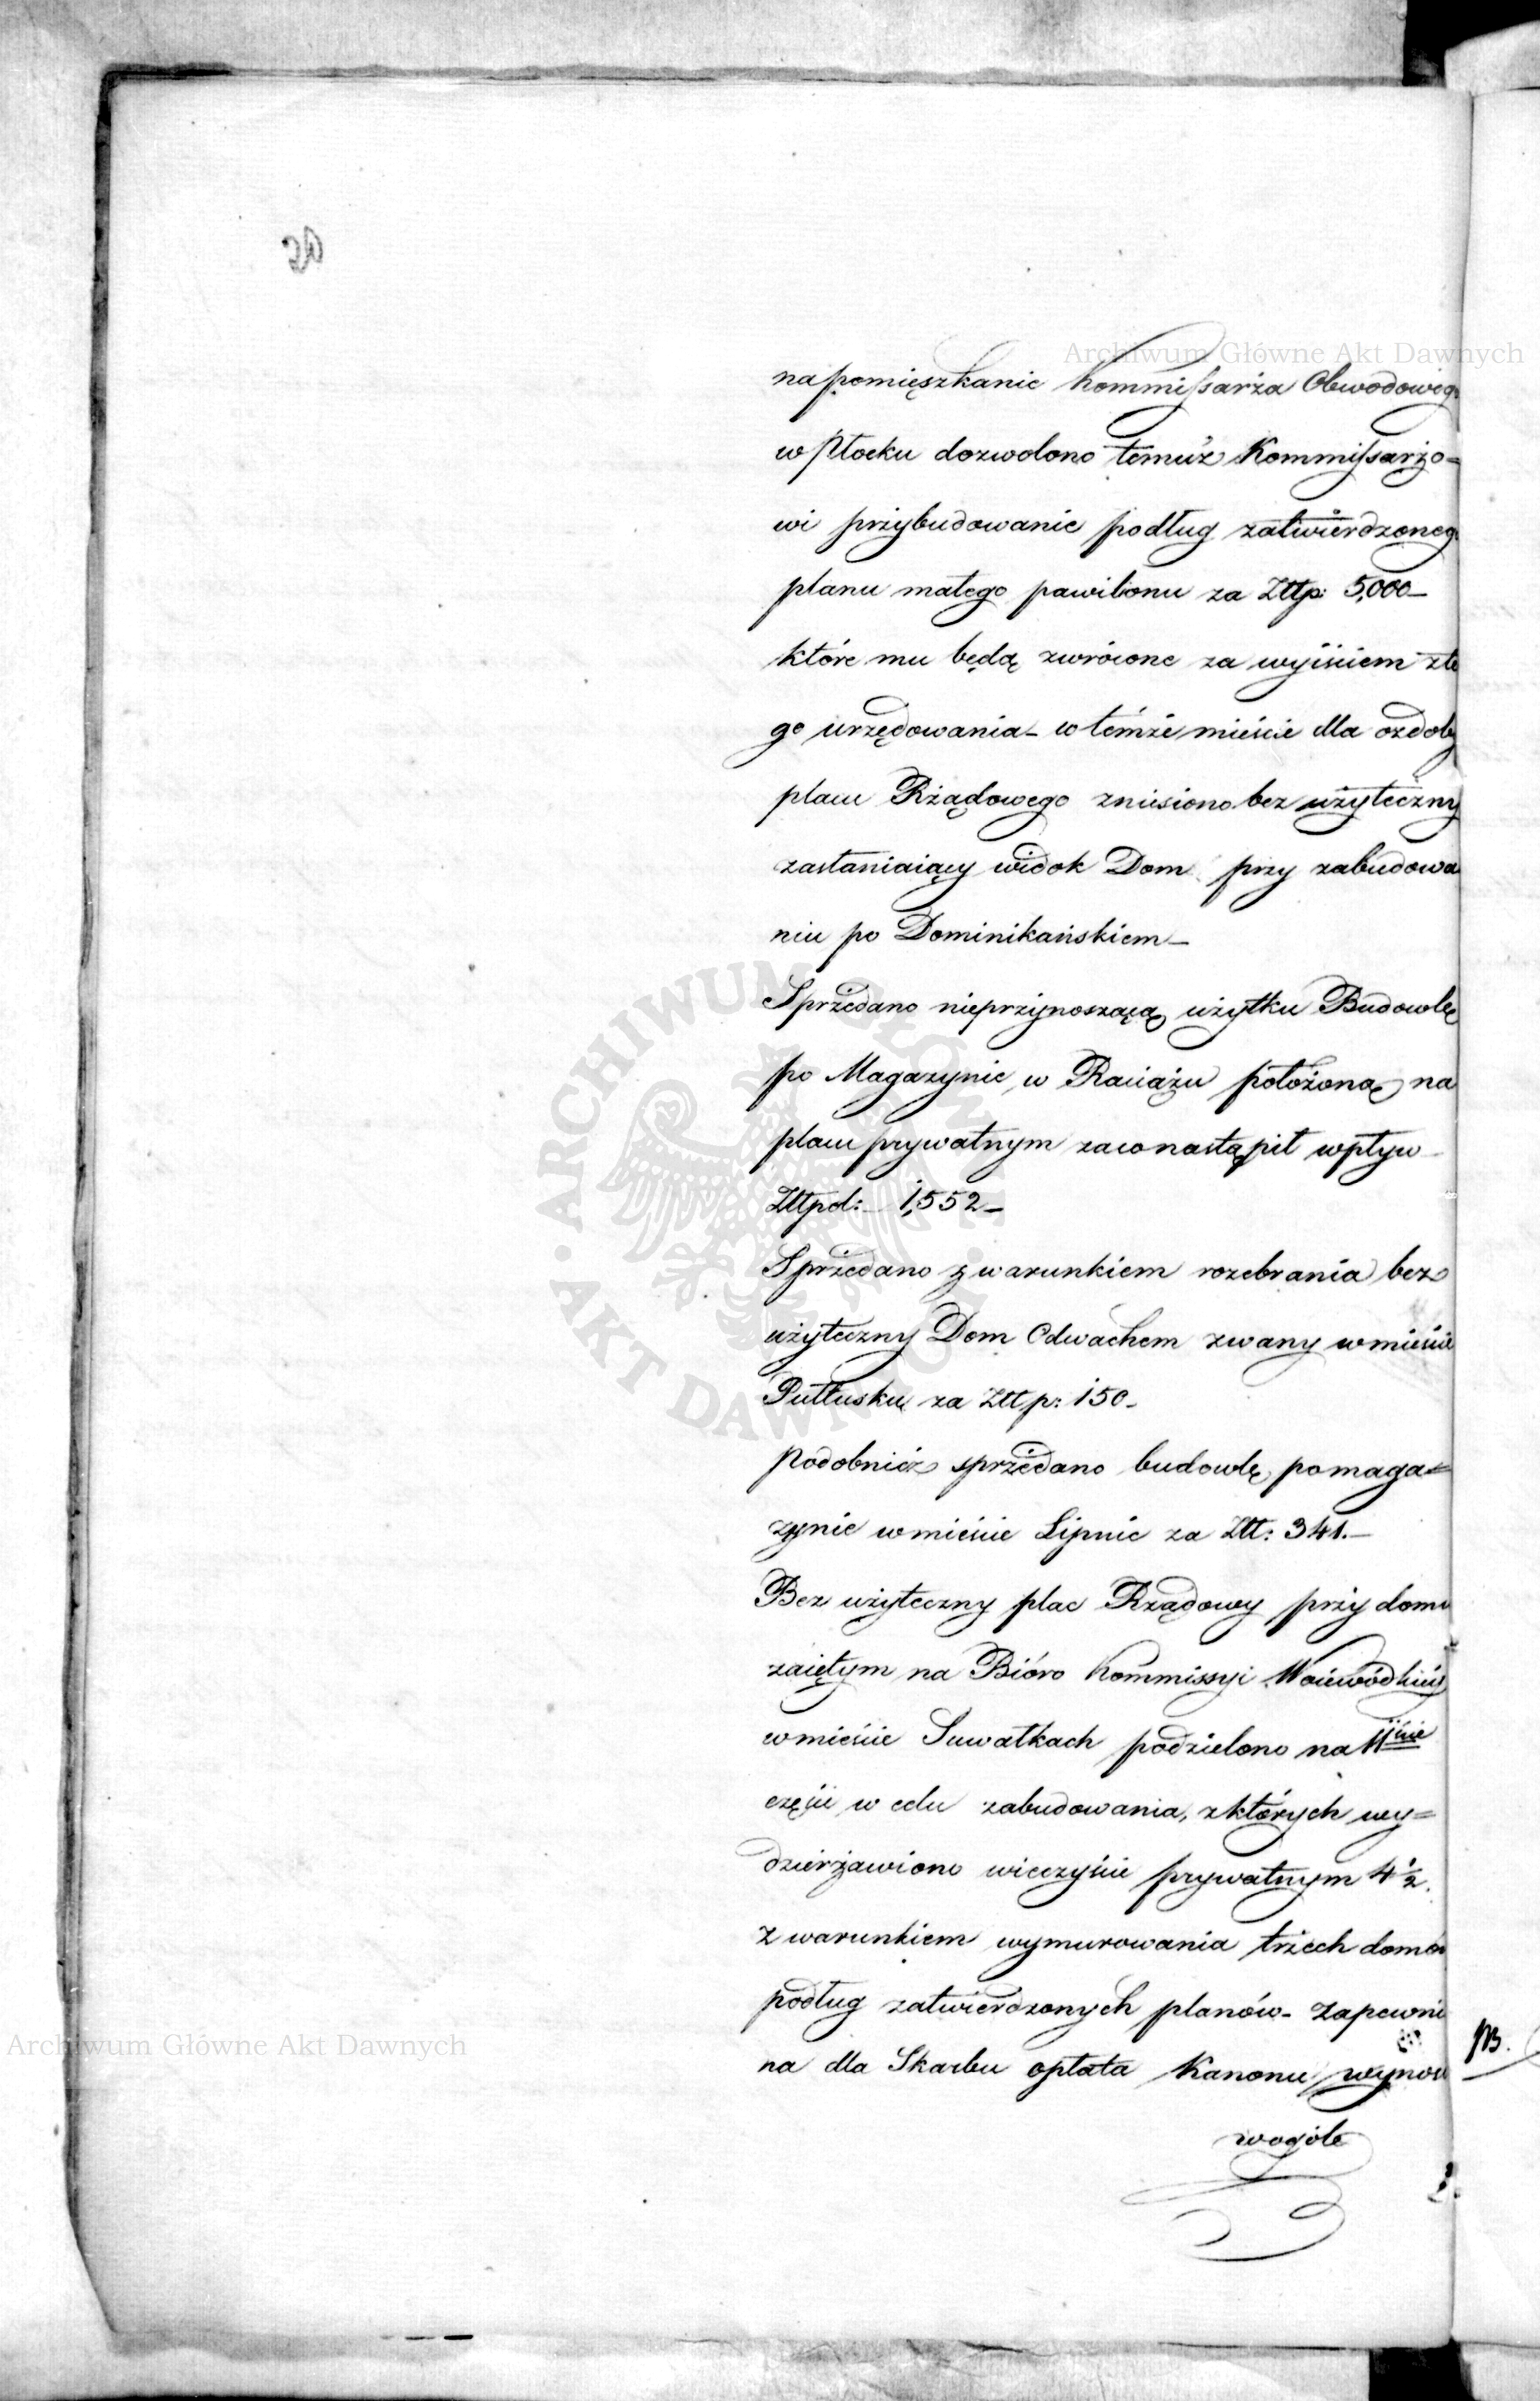 Archiwum Główne Akt Dawnych
na pomięszkanie Kommissarża Obwodoweg
w Płocku dozwolono temuż Kommissarżo=
wi przybudowanie podług zatwierdzoneg
planu małego pawilonu za Zttp: 5,000—
które mu będą zwrócone za wyiściem z te
go urzędowania— w témże mieście dla ozdoby
placu Rżądowego zniesiono bez użyteczny
zasłaniaiący widok Dom przy zabudowa
niu po Dominikańskiem—
Sprzedano nieprzynoszącą użytku Budowlę
po Magazynie w Raciążu położoną na
placu prywatnym za co nastąpił wpływ
Zttpol: 1,552—
Sprzedano z warunkiem rozebrania bez
użyteczny Dom Odwachem zwany w mieście
Pułtusku za Zttp: 150—
Podobnież sprzedano budowlę po maga=
zynie w mieście Lipnie za Ztt: 341.—
Bez użyteczny plac Rządowy przy domu
zaiętym na Bióro Kommissyi Woiewódzkiéy
w mieście Suwałkach podzielono na 11ście
części w celu zabudowania, z których wy=
dzierżawiono wieczyście prywatnym 4½
z warunkiem wymurowania trzech domów
podług zatwierdzonych planów— Zapewnio
na dla Skarbu opłata Kanonu wynosi
wogóle
ARCHIWUM GŁÓWNE AKT DAWNYCH
Archiwum Główne Akt Dawnych